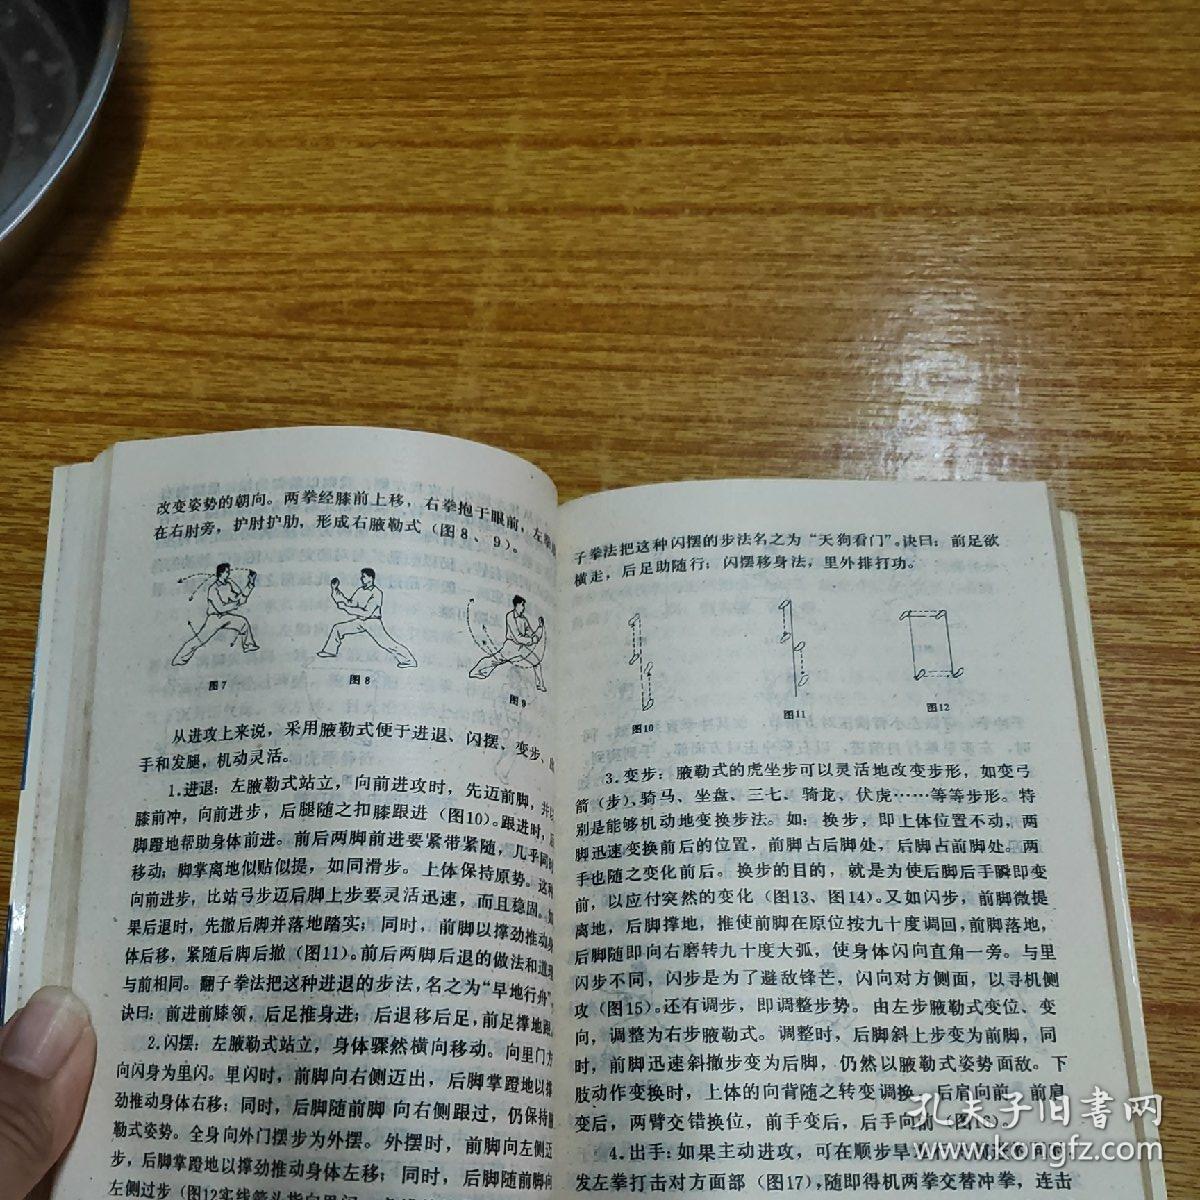 改变姿势的朝向。两拳经膝前上移，右拳抱于眼前，左拳
在右肘旁，护肘护肋，形成右腋勒式（图8、9）。
图7
图8
图9
从进攻上来说，采用腋勒式便于进退、闪摆、变步、出
手和发腿，机动灵活。
1.进退：左腋勒式站立，向前进攻时，先迈前脚，并以
膝前冲，向前进步，后腿随之扣膝跟进（图10）。跟进时，
脚蹬地帮助身体前进。前后两脚前进要紧带紧随，几乎同时
移动；脚掌离地似贴似提，如同滑步。上体保持原势。这种
向前进步，比站弓步迈后脚上步要灵活迅速，而且稳固。如
果后退时，先撤后脚并落地踏实；同时，前脚以撑劲推动身
体后移，紧随后脚后撤（图11）。前后两脚后退的做法和道理
与前相同。翻子拳法把这种进退的步法，名之为“旱地行舟”，
诀曰：前进前膝领，后足推身进；后退移后足，前足撑地跟
2.闪摆：左腋勒式站立，身体骤然横向移动。向里门方
向闪身为里闪。里闪时，前脚向右侧迈出，后脚掌蹬地以撑
劲推动身体右移；同时，后脚随前脚向右侧跟过，仍保持腋
勒式姿势。全身向外门摆步为外摆。外摆时，前脚向左侧迈
步，后脚掌蹬地以撑劲推动身体左移；同时，后脚随前脚向
左侧过步（图12实线箭头指向里闪
子拳法把这种闪摆的步法名之为“天狗看门”。诀曰：前足欲
横走，后足助随行；闪摆移身法，里外排打功。
图10
图11
图12
3.变步：腋勒式的虎坐步可以灵活地改变步形，如变弓
箭（步）、骑马、坐盘、三七、骑龙、伏虎……等等步形。特
别是能够机动地变换步法。如：换步，即上体位置不动，两
脚迅速变换前后的位置，前脚占后脚处，后脚占前脚处。两
手也随之变化前后。换步的目的，就是为使后脚后手瞬即变
前，以应付突然的变化（图13、图14）。又如闪步，前脚微提
离地，后脚撑地，推使前脚在原位按九十度调回，前脚落地，
后脚随即向右磨转九十度大弧，使身体闪向直角一旁。与里
闪步不同，闪步是为了避敌锋芒，闪向对方侧面，以寻机侧
攻（图15）。还有调步，即调整步势。由左步腋勒式变位、变
向，调整为右步腋勒式。调整时，后脚斜上步变为前脚，同
时，前脚迅速斜撤步变为后脚，仍然以腋勒式姿势面敌。下
肢动作变换时，上体的向背随之转变调换。后肩向前，前肩
变后，两臂交错换位，前手变后，后手向前（图16）。
4.出手：如果主动进攻，可在顺步旱
发左拳打击对方面部（图17），随即得机两拳交替冲拳，连击
孔夫子旧书网
www.kongfz.com